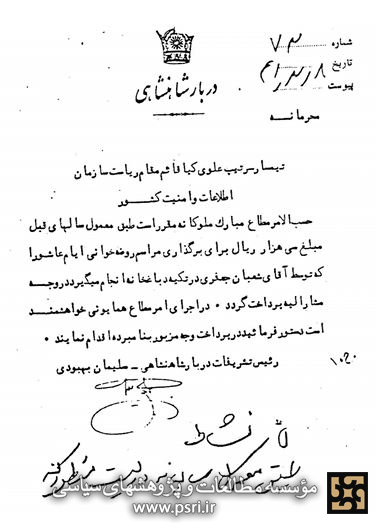 شماره ۷۳
تاریخ
پیوست
دربار شاهنشاهی
محرمانه
تیمسار سرتیپ علوی کیا قائم مقام ریاست سازمان
اطلاعات و امنیت کشور
حسب الامر مطاع مبارک ملوکانه مقرر است طبق معمول سالهای قبل
مبلغ سی هزار ریال برای برگذاری مراسم روضه خوانی ایام عاشورا
که توسط آقای شعبان جعفری در تکیه دباغخانه انجام میگیرد در وجه
مشارالیه پرداخت گردد ۰ در اجرای امر مطاع همایونی خواهشمند
است دستور فرمائید در پرداخت وجه مزبور بنامبرده اقدام نمایند ۰
رئیس تشریفات دربار شاهنشاهی - سلیمان بهبودی
نشاط
طبق معمول
مؤسسه مطالعات و پژوهشهای سیاسی
www.psri.ir